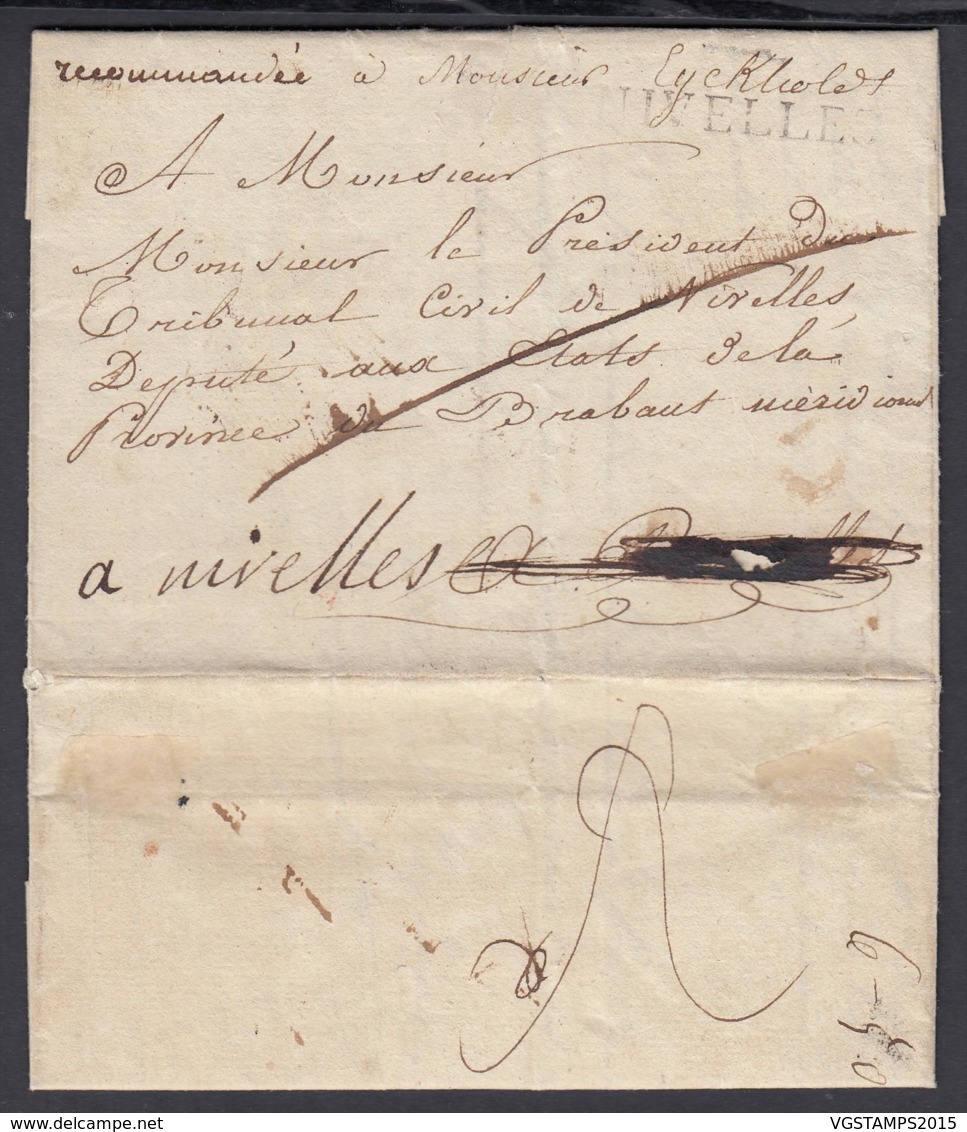 recommandée à Monsieur Eyckholdt
NIVELLES
A Monsieur
Monsieur le Président du
Tribunal Civil de Nivelles
Deputé aux Etats de la
Province du Brabant méridional
a nivelles
VGSTAMPS2015